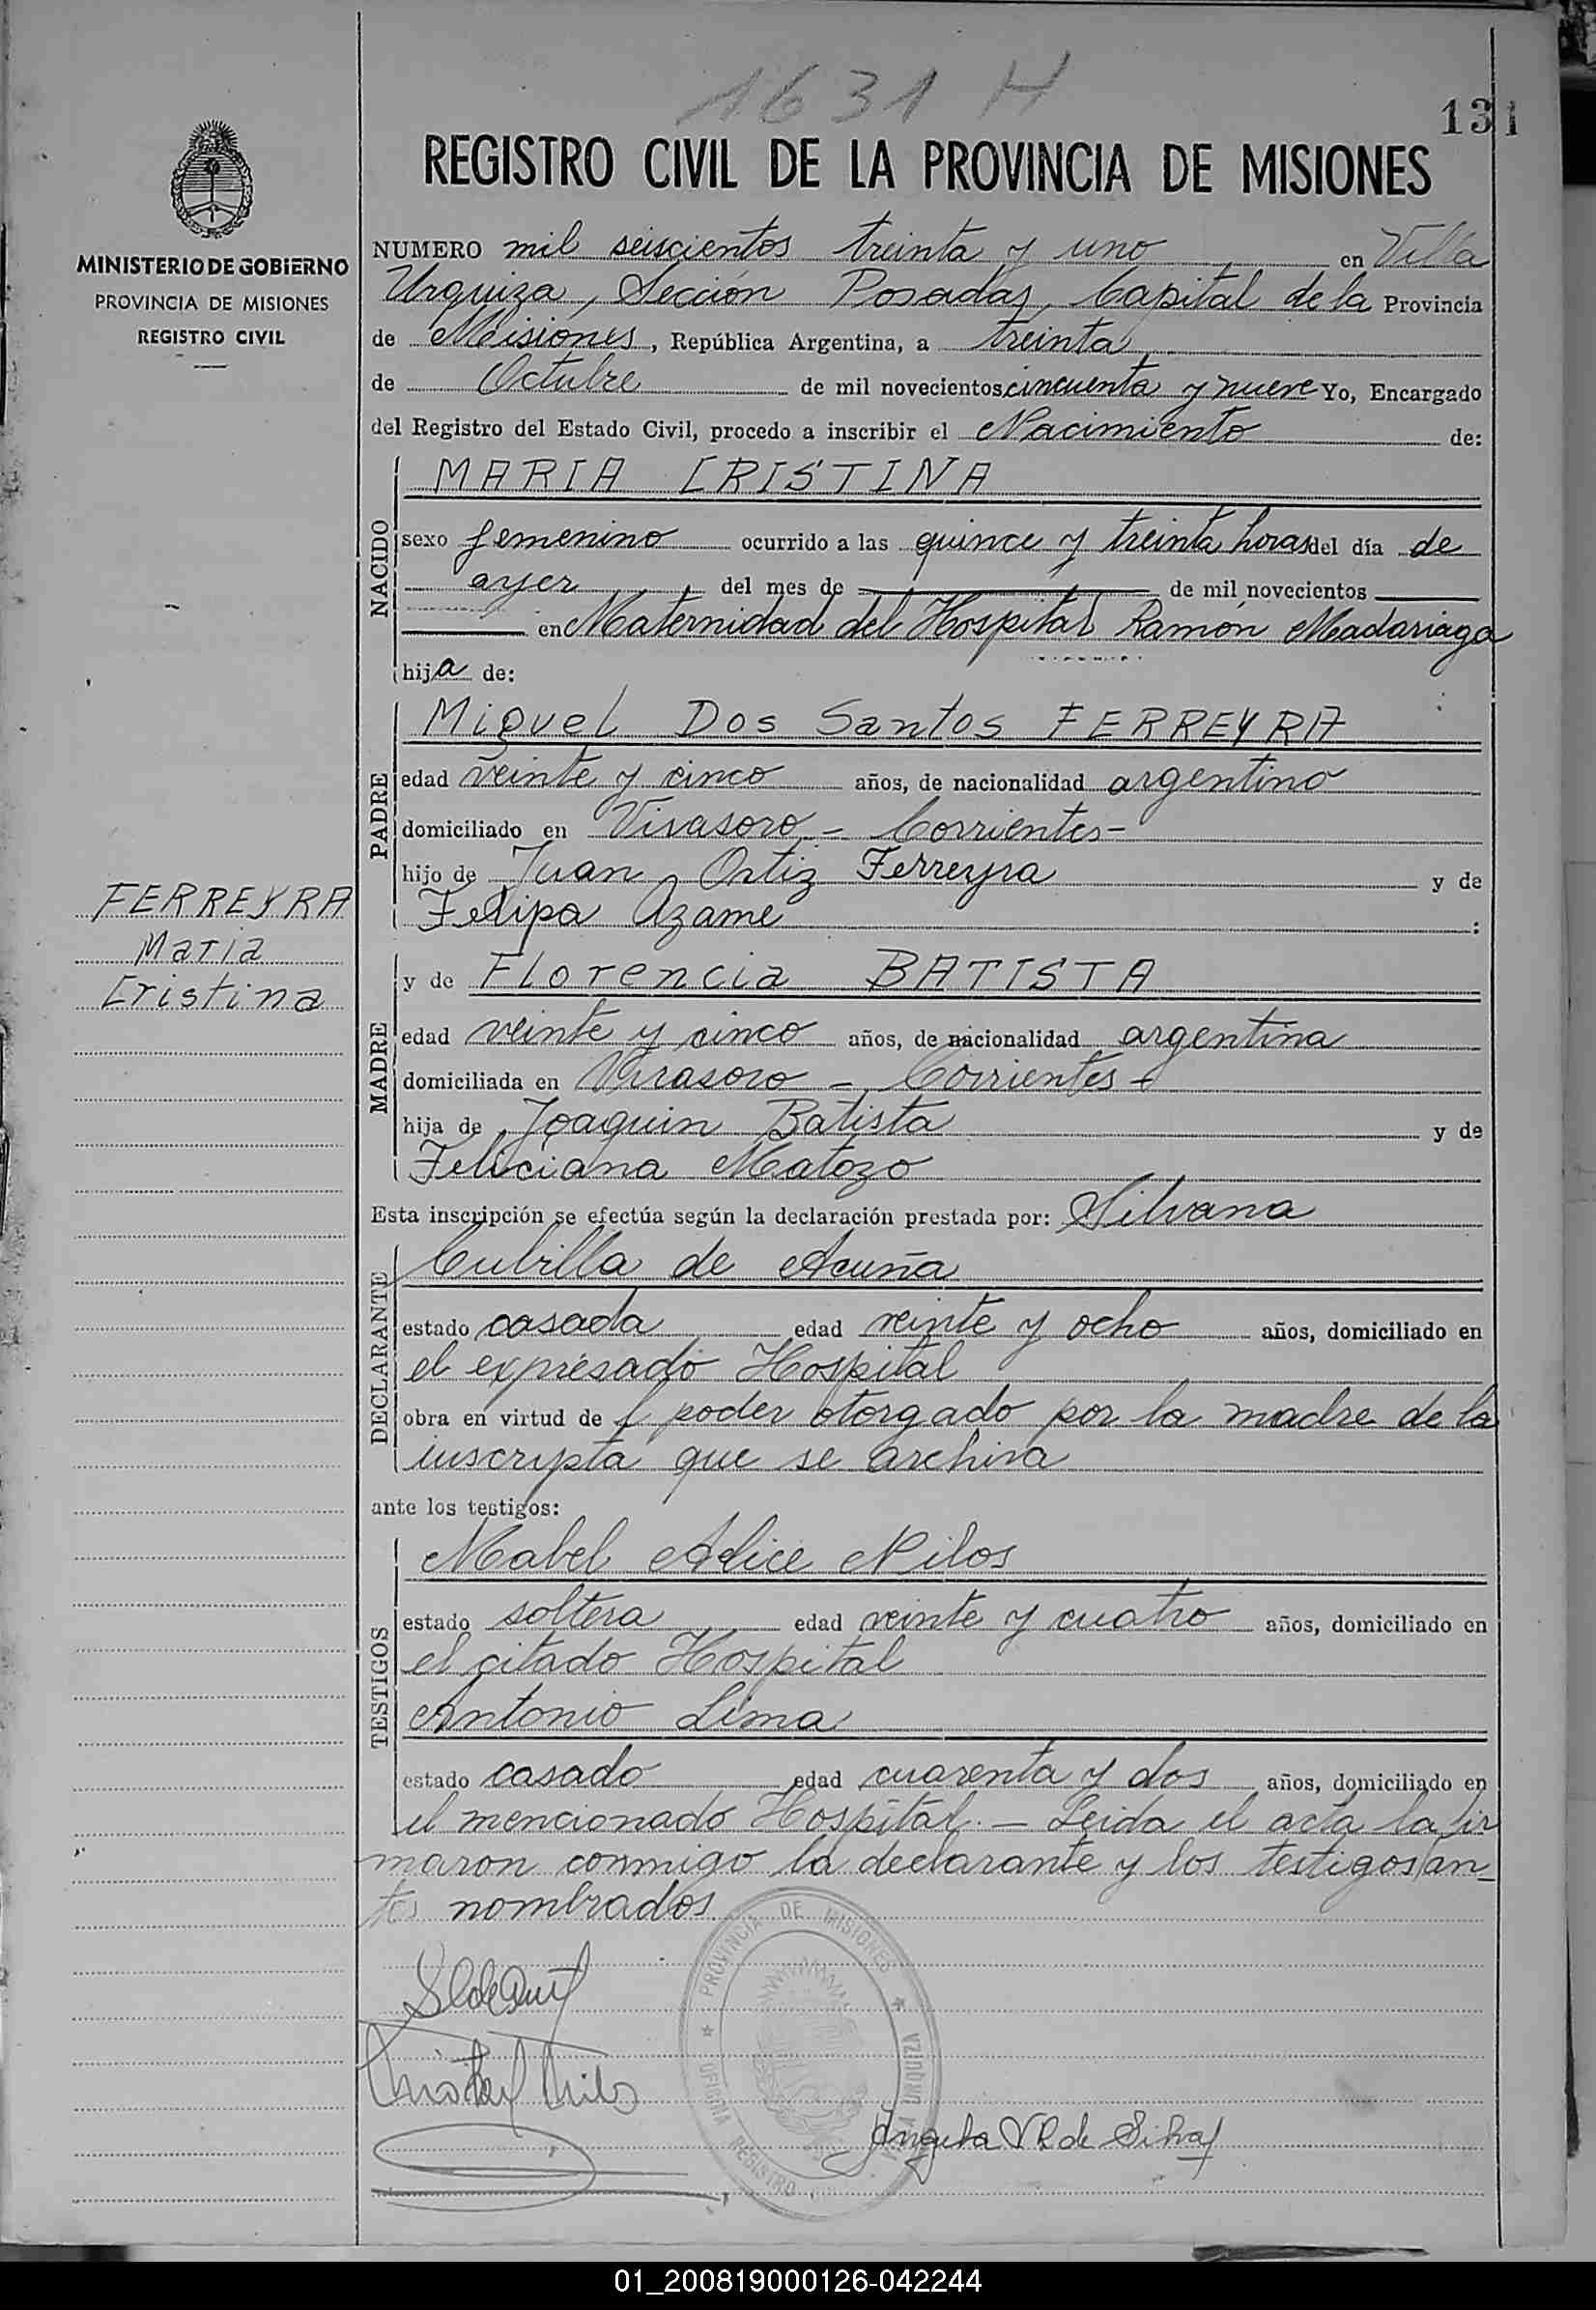 1631 H
131
REGISTRO CIVIL DE LA PROVINCIA DE MISIONES
MINISTERIO DE GOBIERNO
PROVINCIA DE MISIONES
REGISTRO CIVIL
NUMERO mil seiscientos treinta y uno en Villa
Urquiza, Sección Posadas, Capital de la Provincia
de Misiones, República Argentina, a treinta
de Octubre de mil novecientos cincuenta y nueve Yo, Encargado
del Registro del Estado Civil, procedo a inscribir el Nacimiento de:
NACIDO
MARIA CRISTINA
sexo femenino ocurrido a las quince y treinta horas del día de
ayer del mes de de mil novecientos
en Maternidad del Hospital Ramón Madariaga
hija de:
PADRE
Miguel Dos Santos FERREYRA
edad veinte y cinco años, de nacionalidad argentino
domiciliado en Vivasoro - Corrientes-
hijo de Juan Ortiz Ferreyra y de
Felipa Azame :
FERREYRA
Maria
Cristina
MADRE
y de Florencia BATISTA
edad veinte y cinco años, de nacionalidad argentina
domiciliada en Virasoro - Corrientes -
hija de Joaquin Batista y de
Feliciana Matozo
Esta inscripción se efectúa según la declaración prestada por: Silvana
DECLARANTE
Cubilla de Acuña
estado casada edad veinte y ocho años, domiciliado en
el expresado Hospital
obra en virtud de l poder otorgado por la madre de la
inscripta que se archiva
ante los testigos:
TESTIGOS
Mabel Alice Nilos
estado soltera edad veinte y cuatro años, domiciliado en
el citado Hospital
Antonio Lima
estado casado edad cuarenta y dos años, domiciliado en
el mencionado Hospital. - Leida el acta la fir
maron conmigo la declarante y los testigos an_
tes nombrados.
PROVINCIA DE MISIONES
OFICINA REGISTRO
URQUIZA
Angela V R de Silva
01_200819000126-042244